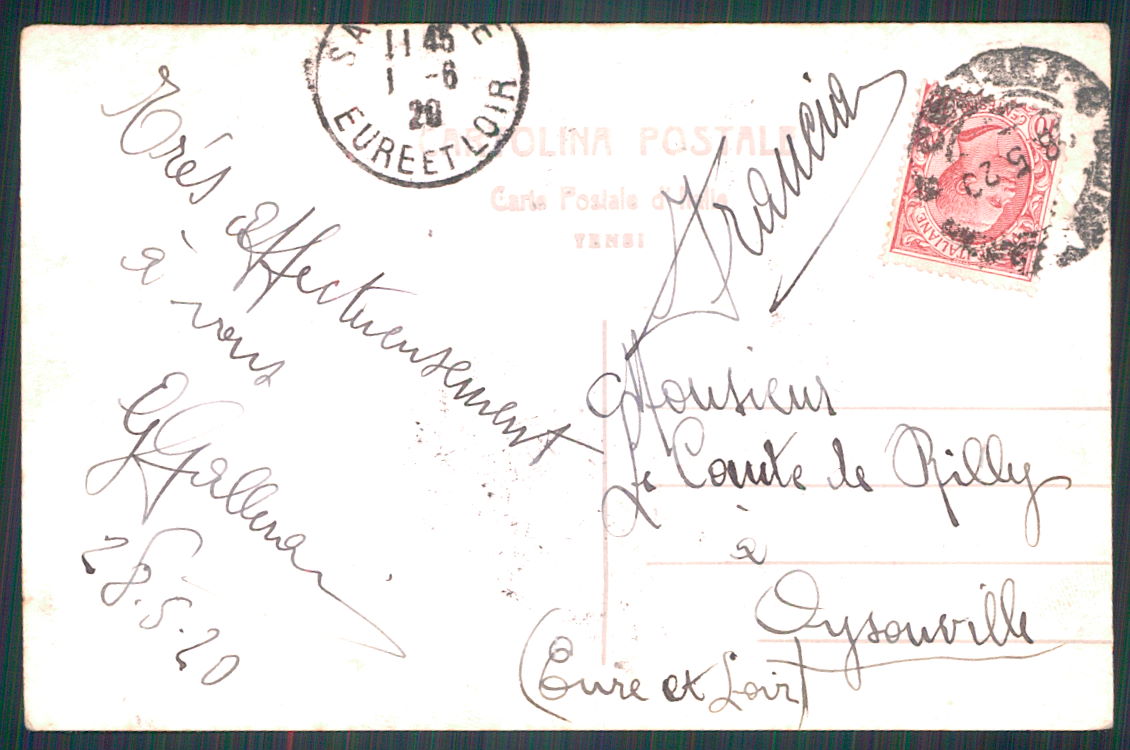 11 45
1 -6
20
EURE ET LOIR
CARTOLINA POSTALE
Carte Postale d'Italie
TENSI
Francia
ITALIANE
5 23
Très affectueusement
à vous
28.5.20
Monsieur
Le Comte de Rilly
à
Oysonville
(Eure et Loir)